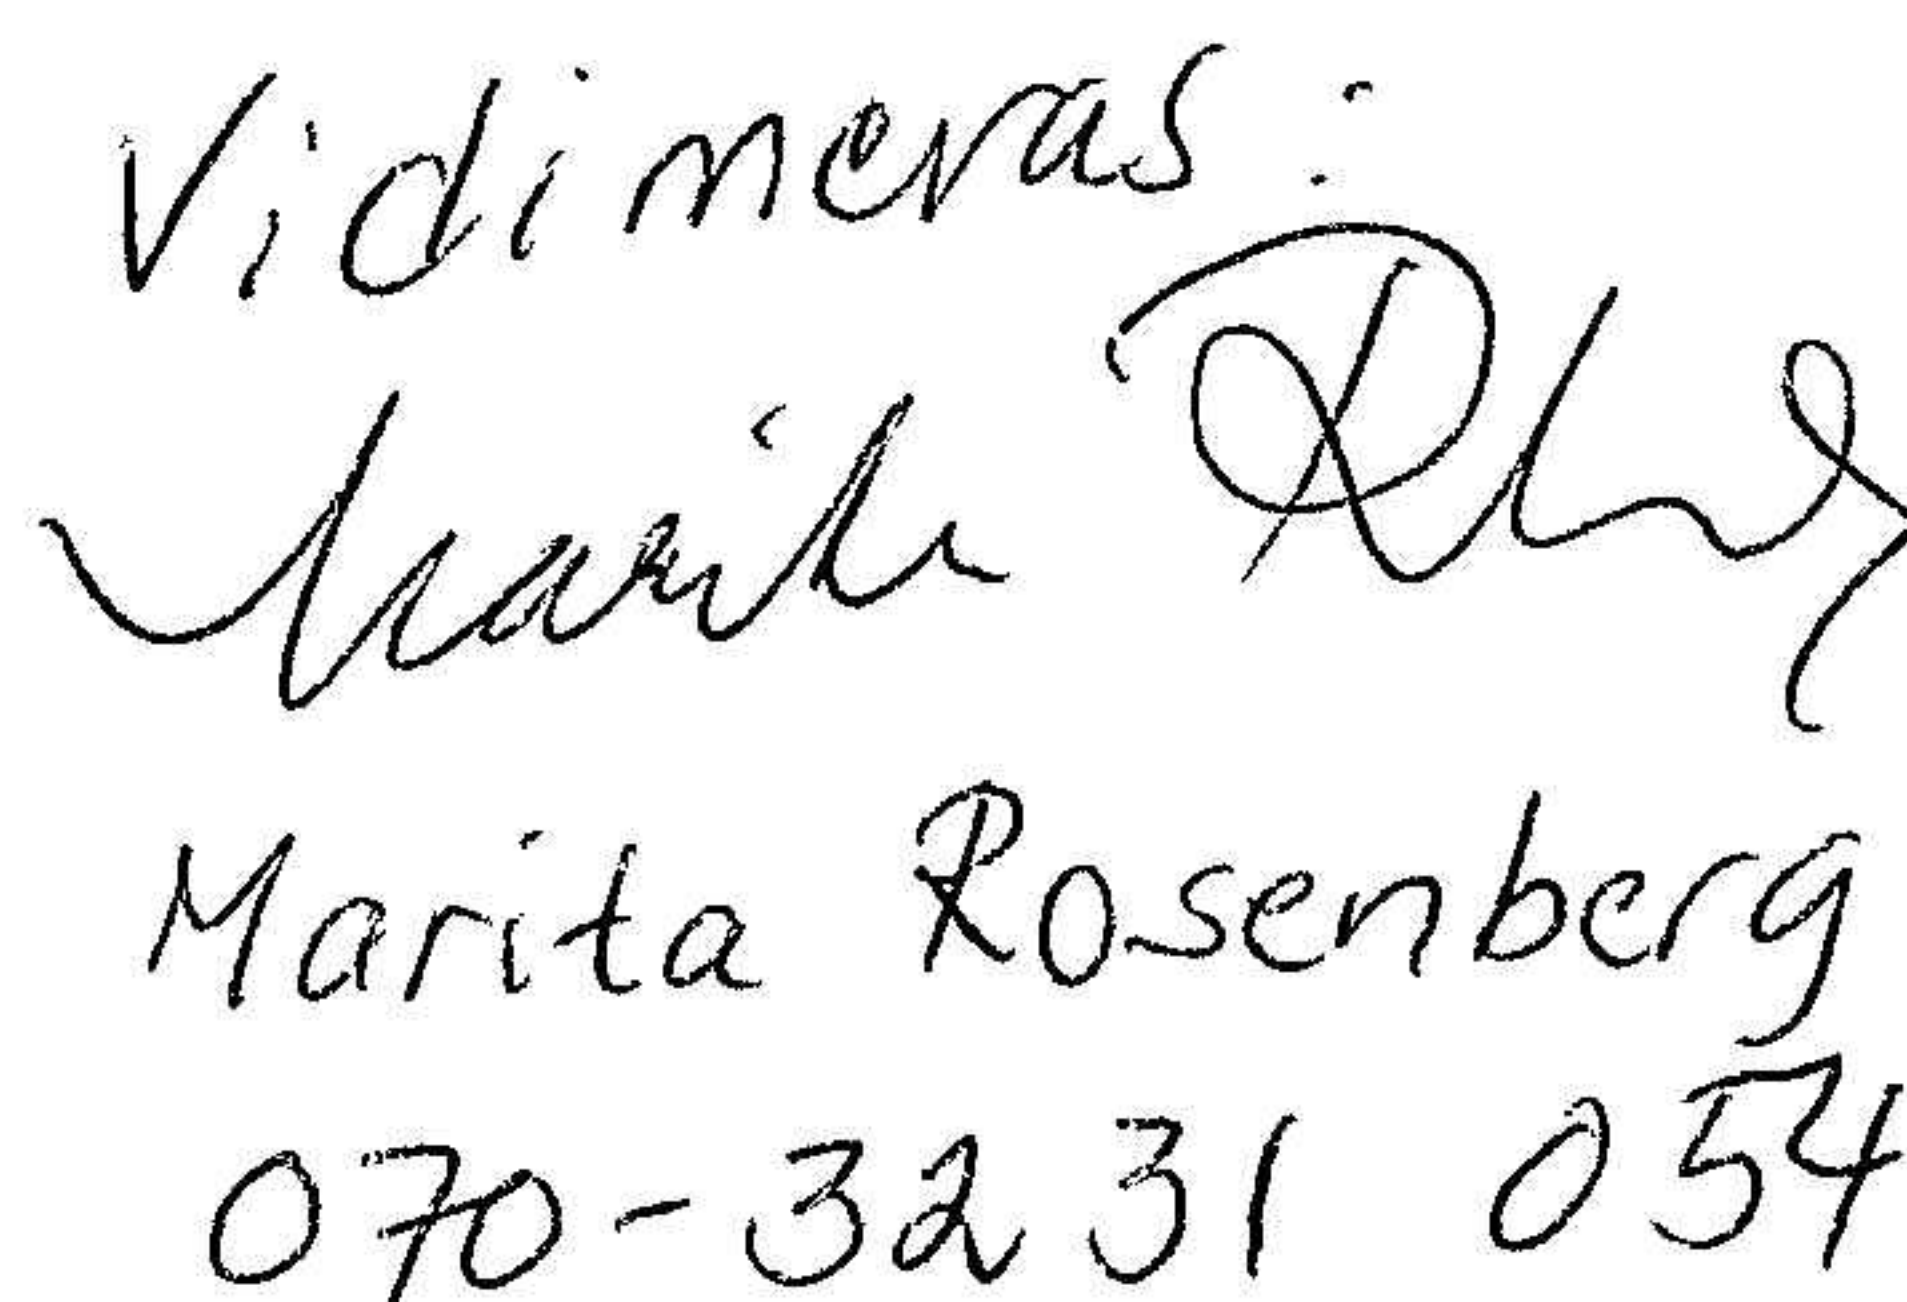 Vidimeras:
Marita
Marita Rosenberg
070-3231 054